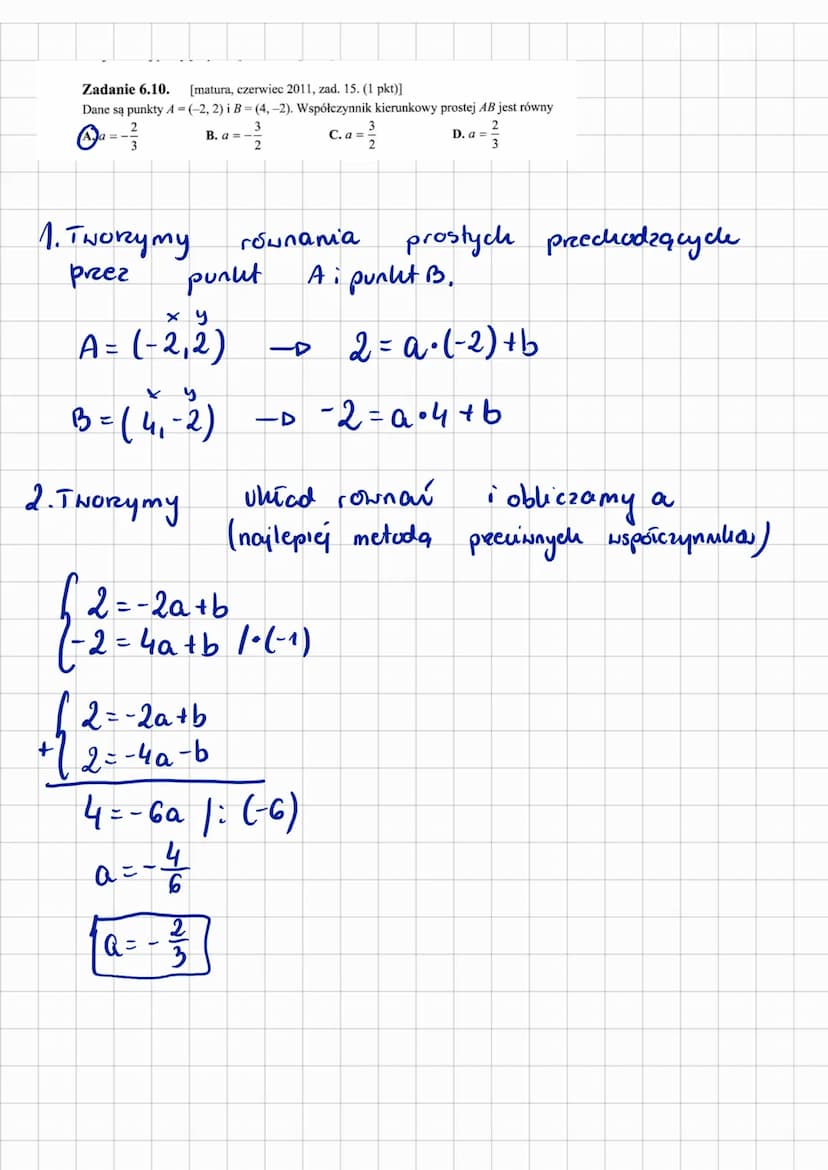 Zadanie 6.10. [matura, czerwiec 2011, zad. 15. (1 pkt)]
Dane są punkty A = (–2, 2) i B = (4, –2). Współczynnik kierunkowy prostej AB jest równy
A. a = –2/3 B. a = –3/2 C. a = 3/2 D. a = 2/3
1. Tworzymy równania prostych przechodzących
przez punkt A i punkt B.
x y
A = (-2,2) → 2 = a·(-2)+b
x y
B = (4,-2) → -2 = a·4+b
2. Tworzymy układ równań i obliczamy a
(najlepiej metodą przeciwnych współczynników)
{ 2 = -2a+b
-2 = 4a+b /·(-1)
{ 2 = -2a+b
+ 2 = -4a-b
4 = -6a /: (-6)
a = -4/6
a = -2/3